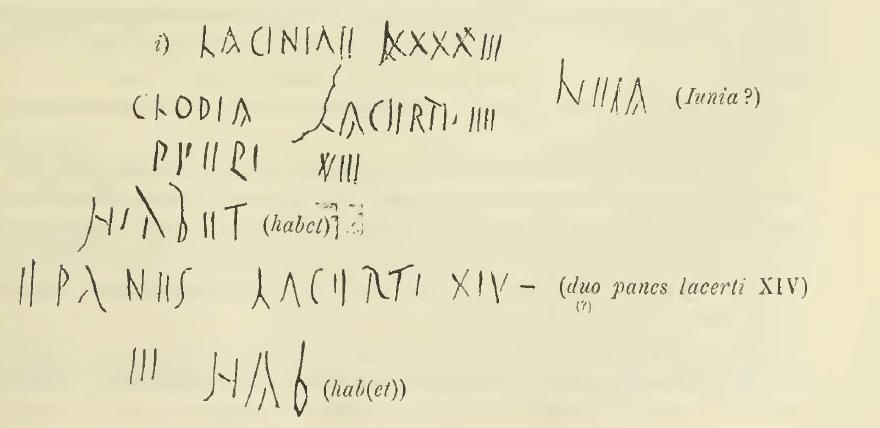 i) LACINIAII
NIIIA (Iunia?)
CLODIA LACIIRTI· IIII
XIII
HABIIT (habet)
II PANIIS LACIIRTI XIV – (duo panes lacerti XIV)
(?)
III HAB (hab(et))